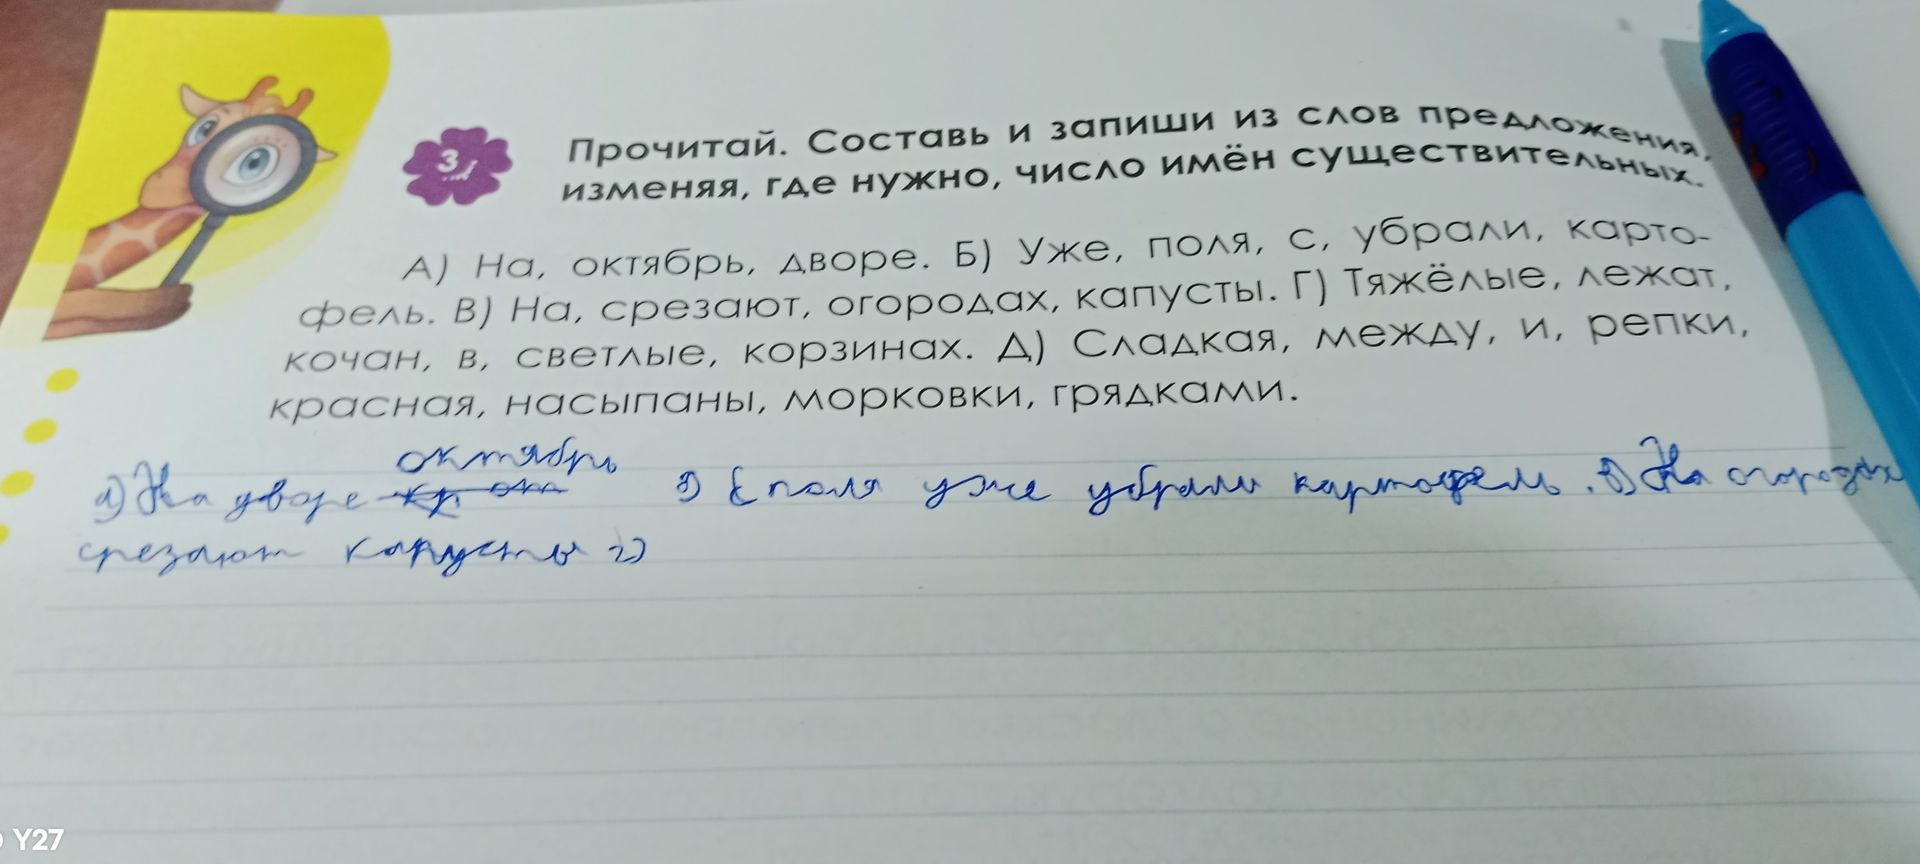 3
Прочитай. Составь и запиши из слов предложения,
изменяя, где нужно, число имён существительных.
А) На, октябрь, дворе. Б) Уже, поля, с, убрали, карто-
фель. В) На, срезают, огородах, капусты. Г) Тяжёлые, лежат,
кочан, в, светлые, корзинах. Д) Сладкая, между, и, репки,
красная, насыпаны, морковки, грядками.
октябрь
а) На дворе С поля уже убрали картофель. в) На огородах
срезают капусты г)
Y27